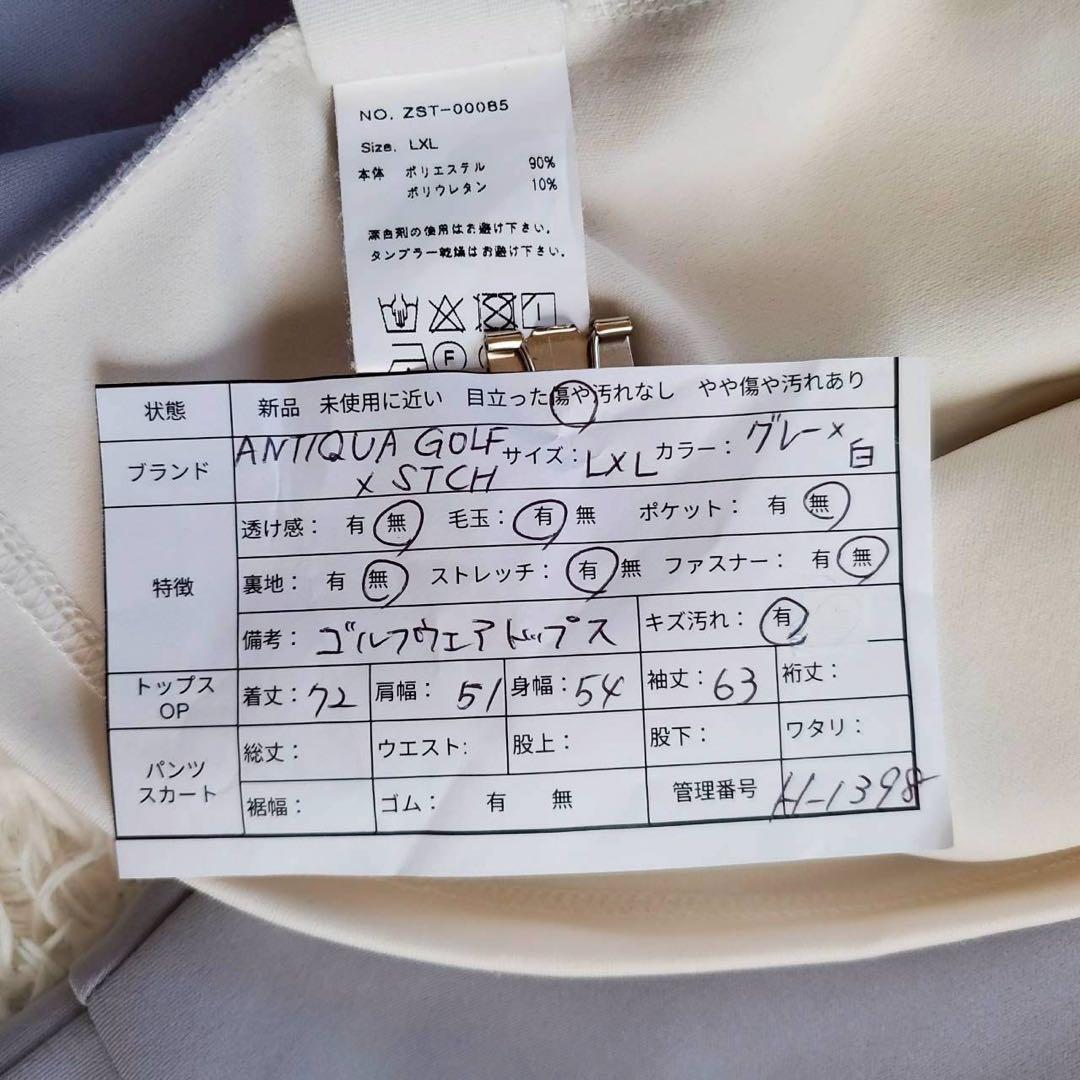 NO. ZST-00085
Size. LXL
本体 ポリエステル 90%
ポリウレタン 10%
漂白剤の使用はお避け下さい。
タンブラー乾燥はお避け下さい。
F
状態 新品 未使用に近い 目立った傷や汚れなし やや傷や汚れあり
ブランド ANTIQUA GOLF x STCH サイズ: LXL カラー: グレー×白
特徴
透け感: 有 無 毛玉: 有 無 ポケット: 有 無
裏地: 有 無 ストレッチ: 有 無 ファスナー: 有 無
備考: ゴルフウエアトップス キズ汚れ: 有
トップス OP 着丈: 72 肩幅: 51 身幅: 54 袖丈: 63 裄丈:
パンツ スカート
総丈: ウエスト: 股上: 股下: ワタリ:
裾幅: ゴム: 有 無 管理番号 H-1398